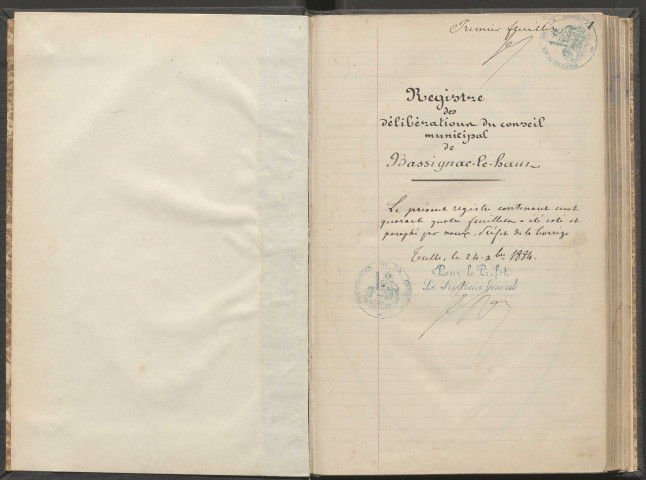 Premier feuillet
1
Registre
des
délibérations du conseil
municipal
de
Bassignac-le-haut
Le présent registre contenant cent
quarante quatre feuillets a été coté et
paraphé par nous, Préfet de la Corrèze
Tulle, le 24 Xbre 1884.
Pour le Préfet
Le Secrétaire Général